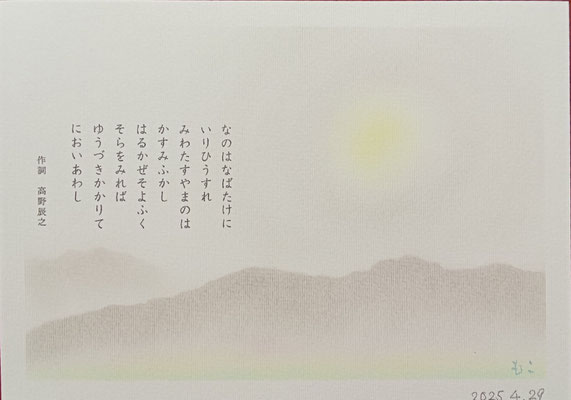 なのはなばたけに
いりひうすれ
みわたすやまのは
かすみふかし
はるかぜそよふく
そらをみれば
ゆうづきかかりて
においあわし
作詞 高野辰之
2025.4.29